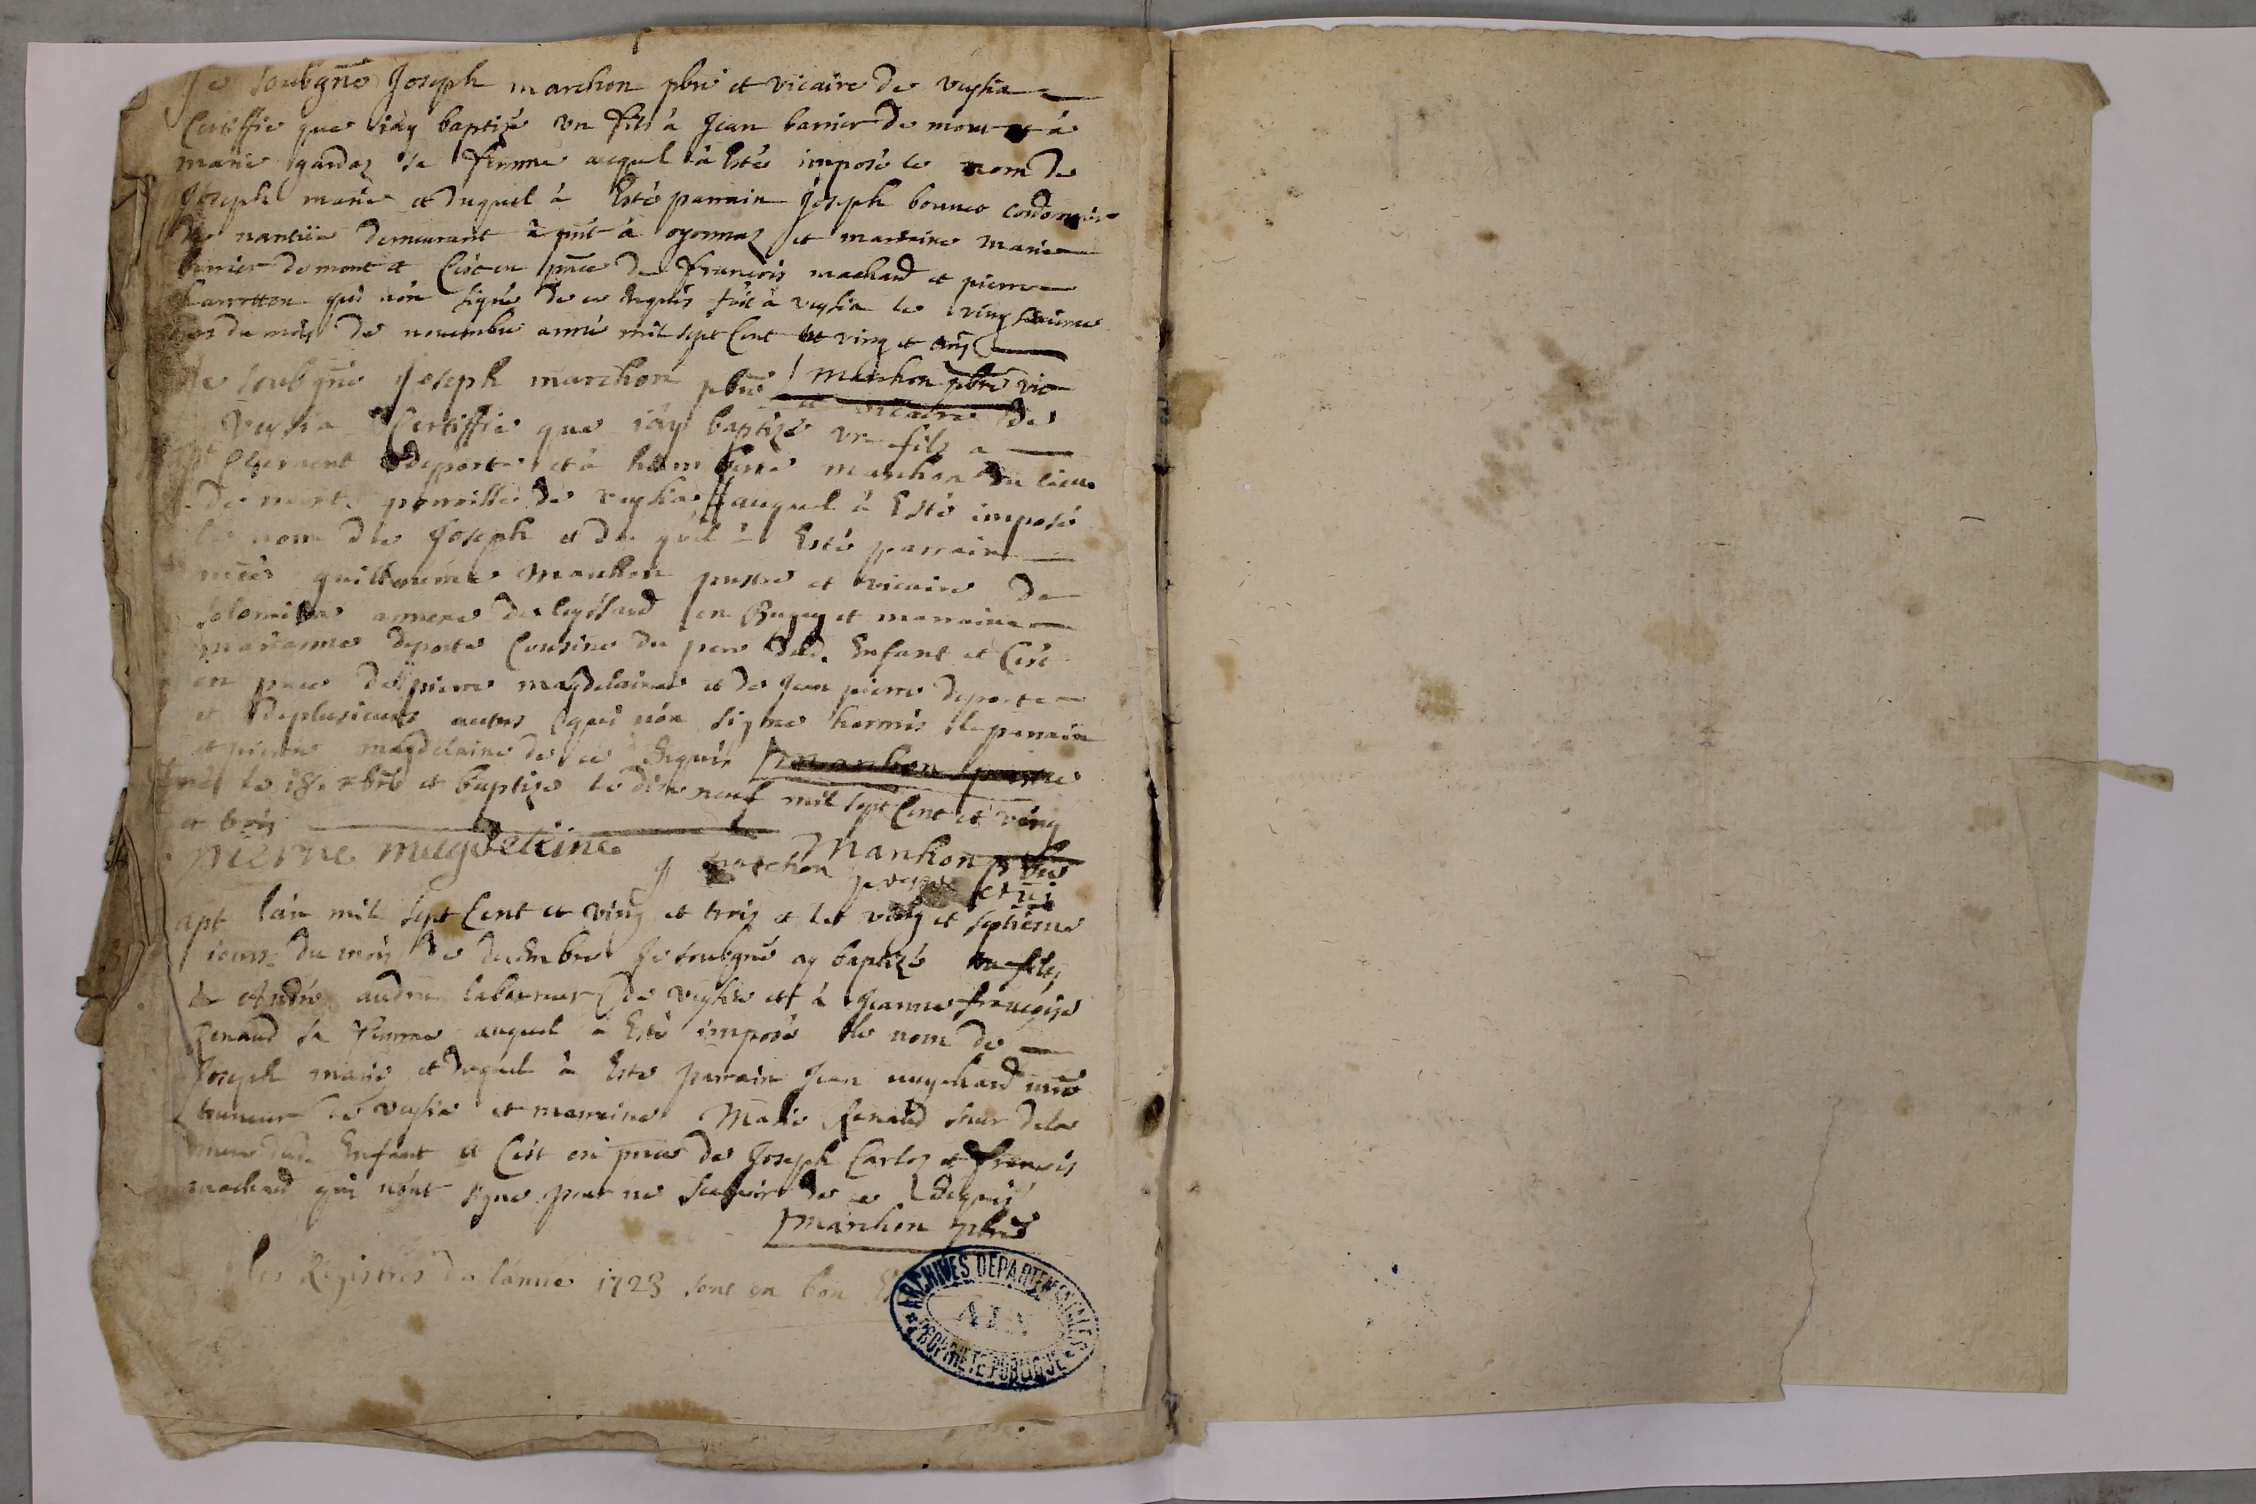 Je soubgné Joseph marchon pbre et vicaire de veysia
Certiffie que iây baptizé vn fils à Jean barrier de mont et à
marie gardaz sa femme auquel à Esté imposé le nom de
Joseph marie et duquel à Esté parrain Joseph bonnet cordonnier
de nantüa demeurant à pnt à oyonnaz et marraine marie
barrier de mont et Cést en pnce de françois machard et pierre
qui nôn signé de ce Requis fait à veysia le ving
du mois de novembre année mil sept Cent et ving et trois
marchon pbre vic
Je soubgné Joseph marchon pbre et vicaire de
Veysia Certiffie que iây baptizé vn fils a
deporte et à marchon du lieu
de mont parroisse de veysia auquel à Esté imposé
le nom de Joseph et du quel à Esté parrain
guillaume Marchon prestre et vicaire de
annexe de en Bugey et marraine
marianne deporte Cousine du pere dud. Enfant et Cést
en pnce de pierre magdelaine et de Jean pierre deporte
et deplusieurs autres qui nón signé hormis le parrain
et pierre magdelaine de ce Requis marchon prestre
né le 18e xbre et baptizé le dix neuf mil sept Cent et ving
et trois
pierre magdeleine
J marchon
Marchon pbre
apt lan mil sept Cent et ving et trois et le ving et septieme
iour du mois de decembre Je soubgné ay baptizé vn fils
à André audru laboureur de veysia et à Jeanne françoise
Renaud sa femme auquel à Esté imposé le nom de
Joseph marie et duquel à Esté parrain Jean
de veysia et marraine Marie Renaud seur de la
mere dud. Enfant et Cést en pnce de Joseph Carloz et françois
machard qui nónt signé pour ne scavoir de ce Requis
marchon pbre
les Registres de lánneé 1723 sont en bon
ARCHIVES DEPARTEMENTALES
AIN
PROPRIETE PUBLIQUE